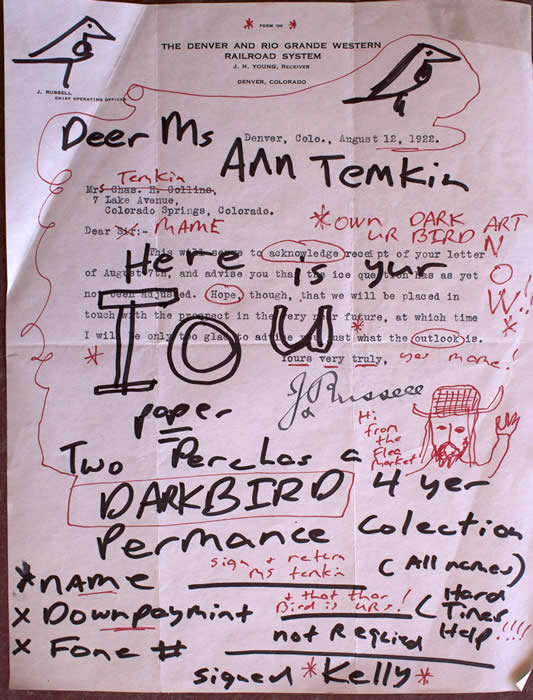 * FORM 108 *
THE DENVER AND RIO GRANDE WESTERN
RAILROAD SYSTEM
J. H. YOUNG, RECEIVER
DENVER, COLORADO
J. RUSSELL
CHIEF OPERATING OFFICER
Denver, Colo., August 12, 1922.
Deer Ms
Ann Temkin
Temkin
Mrs Chas. H. Collins,
7 Lake Avenue,
Colorado Springs, Colorado.
Dear Sir:- MAME
*OWN DARK ART
UR BIRD
NOW!!
Here is yur
IOU
This will serve to acknowledge receipt of your letter
of August 7th, and advise you that the ice question has as yet
not been adjusted. Hope, though, that we will be placed in
touch with the prospect in the very near future, at which time
I will be only too glad to advise you just what the outlook is.
Yours very truly, yes mame!
J Russell
paper
Hi
from
the
Flea
Market
Two Perchas a
DARKBIRD 4 yer
Permance Colection
sign + return
Ms temkin
(All names)
*NAME
+ that thar
Bird is URs!
x Downpaymint
(Hard
Times
Help!!!!
not Requied
x Fone #
signed *Kelly*